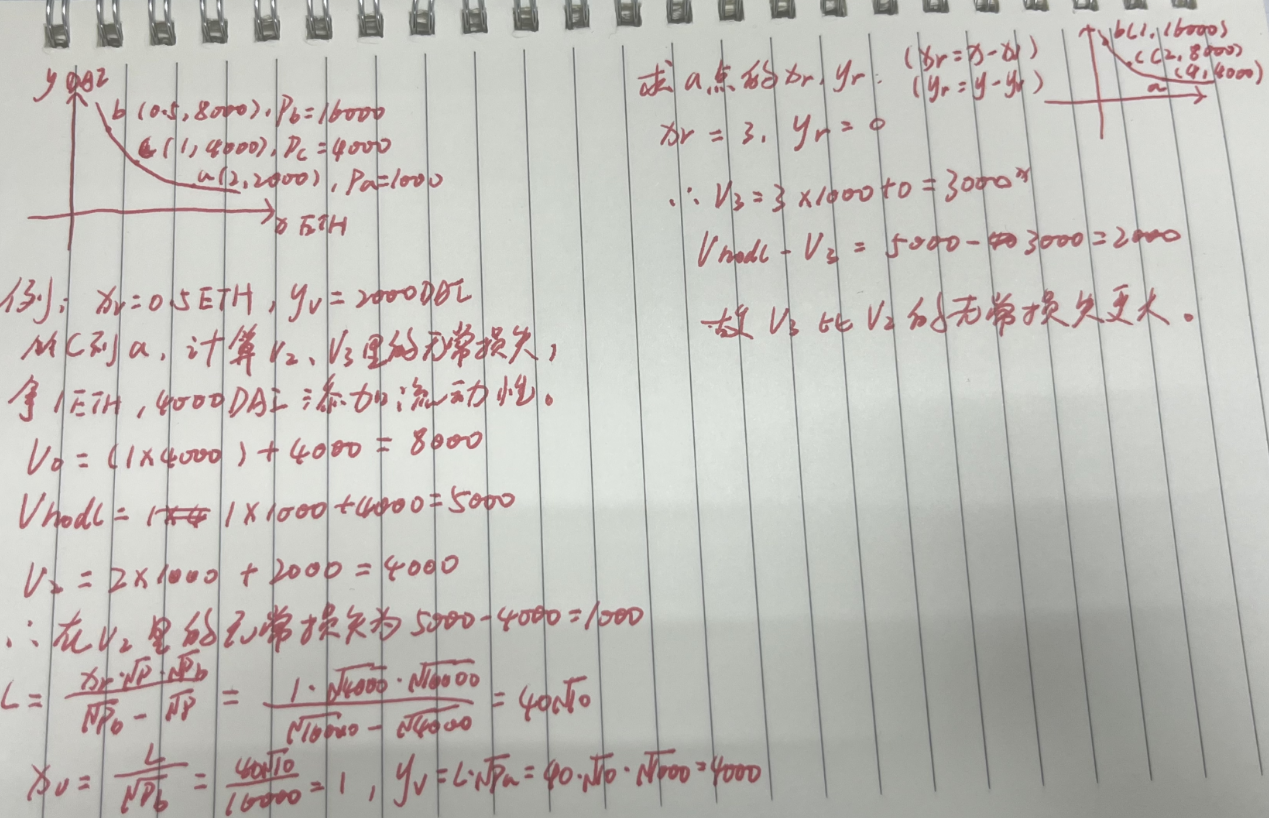 y DAI
b (0.5, 8000). Pb=16000
c (1, 4000), Pc=4000
a(2, 2000), Pa=1000
x ETH
例: xv=0.5ETH, yv=2000DAI
从C到a, 计算V2、V3里的无常损失,
拿1ETH, 4000DAI添加流动性。
V0 = (1×4000) + 4000 = 8000
Vhodl = 1×1000+4000=5000
V2 = 2×1000 + 2000 = 4000
∴ 在V2里的无常损失为 5000-4000=1000
L = xr·√P·√Pb / (√Pb - √P) = 1·√4000·√16000 / (√16000 - √4000) = 40√10
xv = L/√Pb = 40√10/16000 = 1, yv = L·√Pa = 40·√10·√1000 = 4000
求a点的xr, yr: (xr = x - xv)
(yr = y - yv)
b(1, 16000)
c(2, 8000)
(4, 4000)
a
xr = 3, yr = 0
∴ V3 = 3×1000+0 = 3000
Vhodl - V3 = 5000 - 3000 = 2000
故V3比V2的无常损失更大。